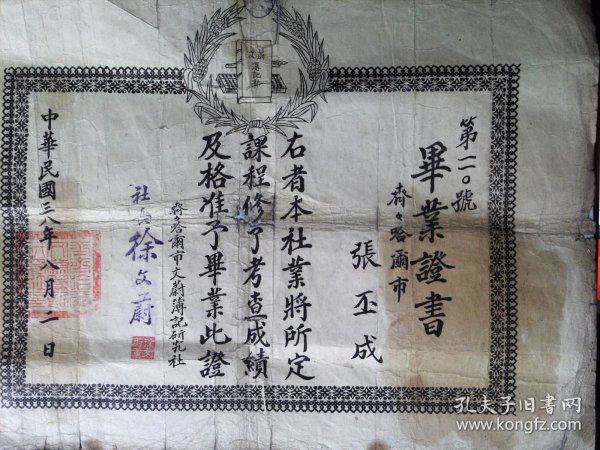 第一一〇號
畢業證書
齊々哈爾市
張丕成
右者本社業將所定
課程修了考查成績
及格准予畢業此證
齊々哈爾市文蔚簿記研究社
社長徐文蔚
中華民國三八年八月二日
孔夫子旧书网
www.kongfz.com